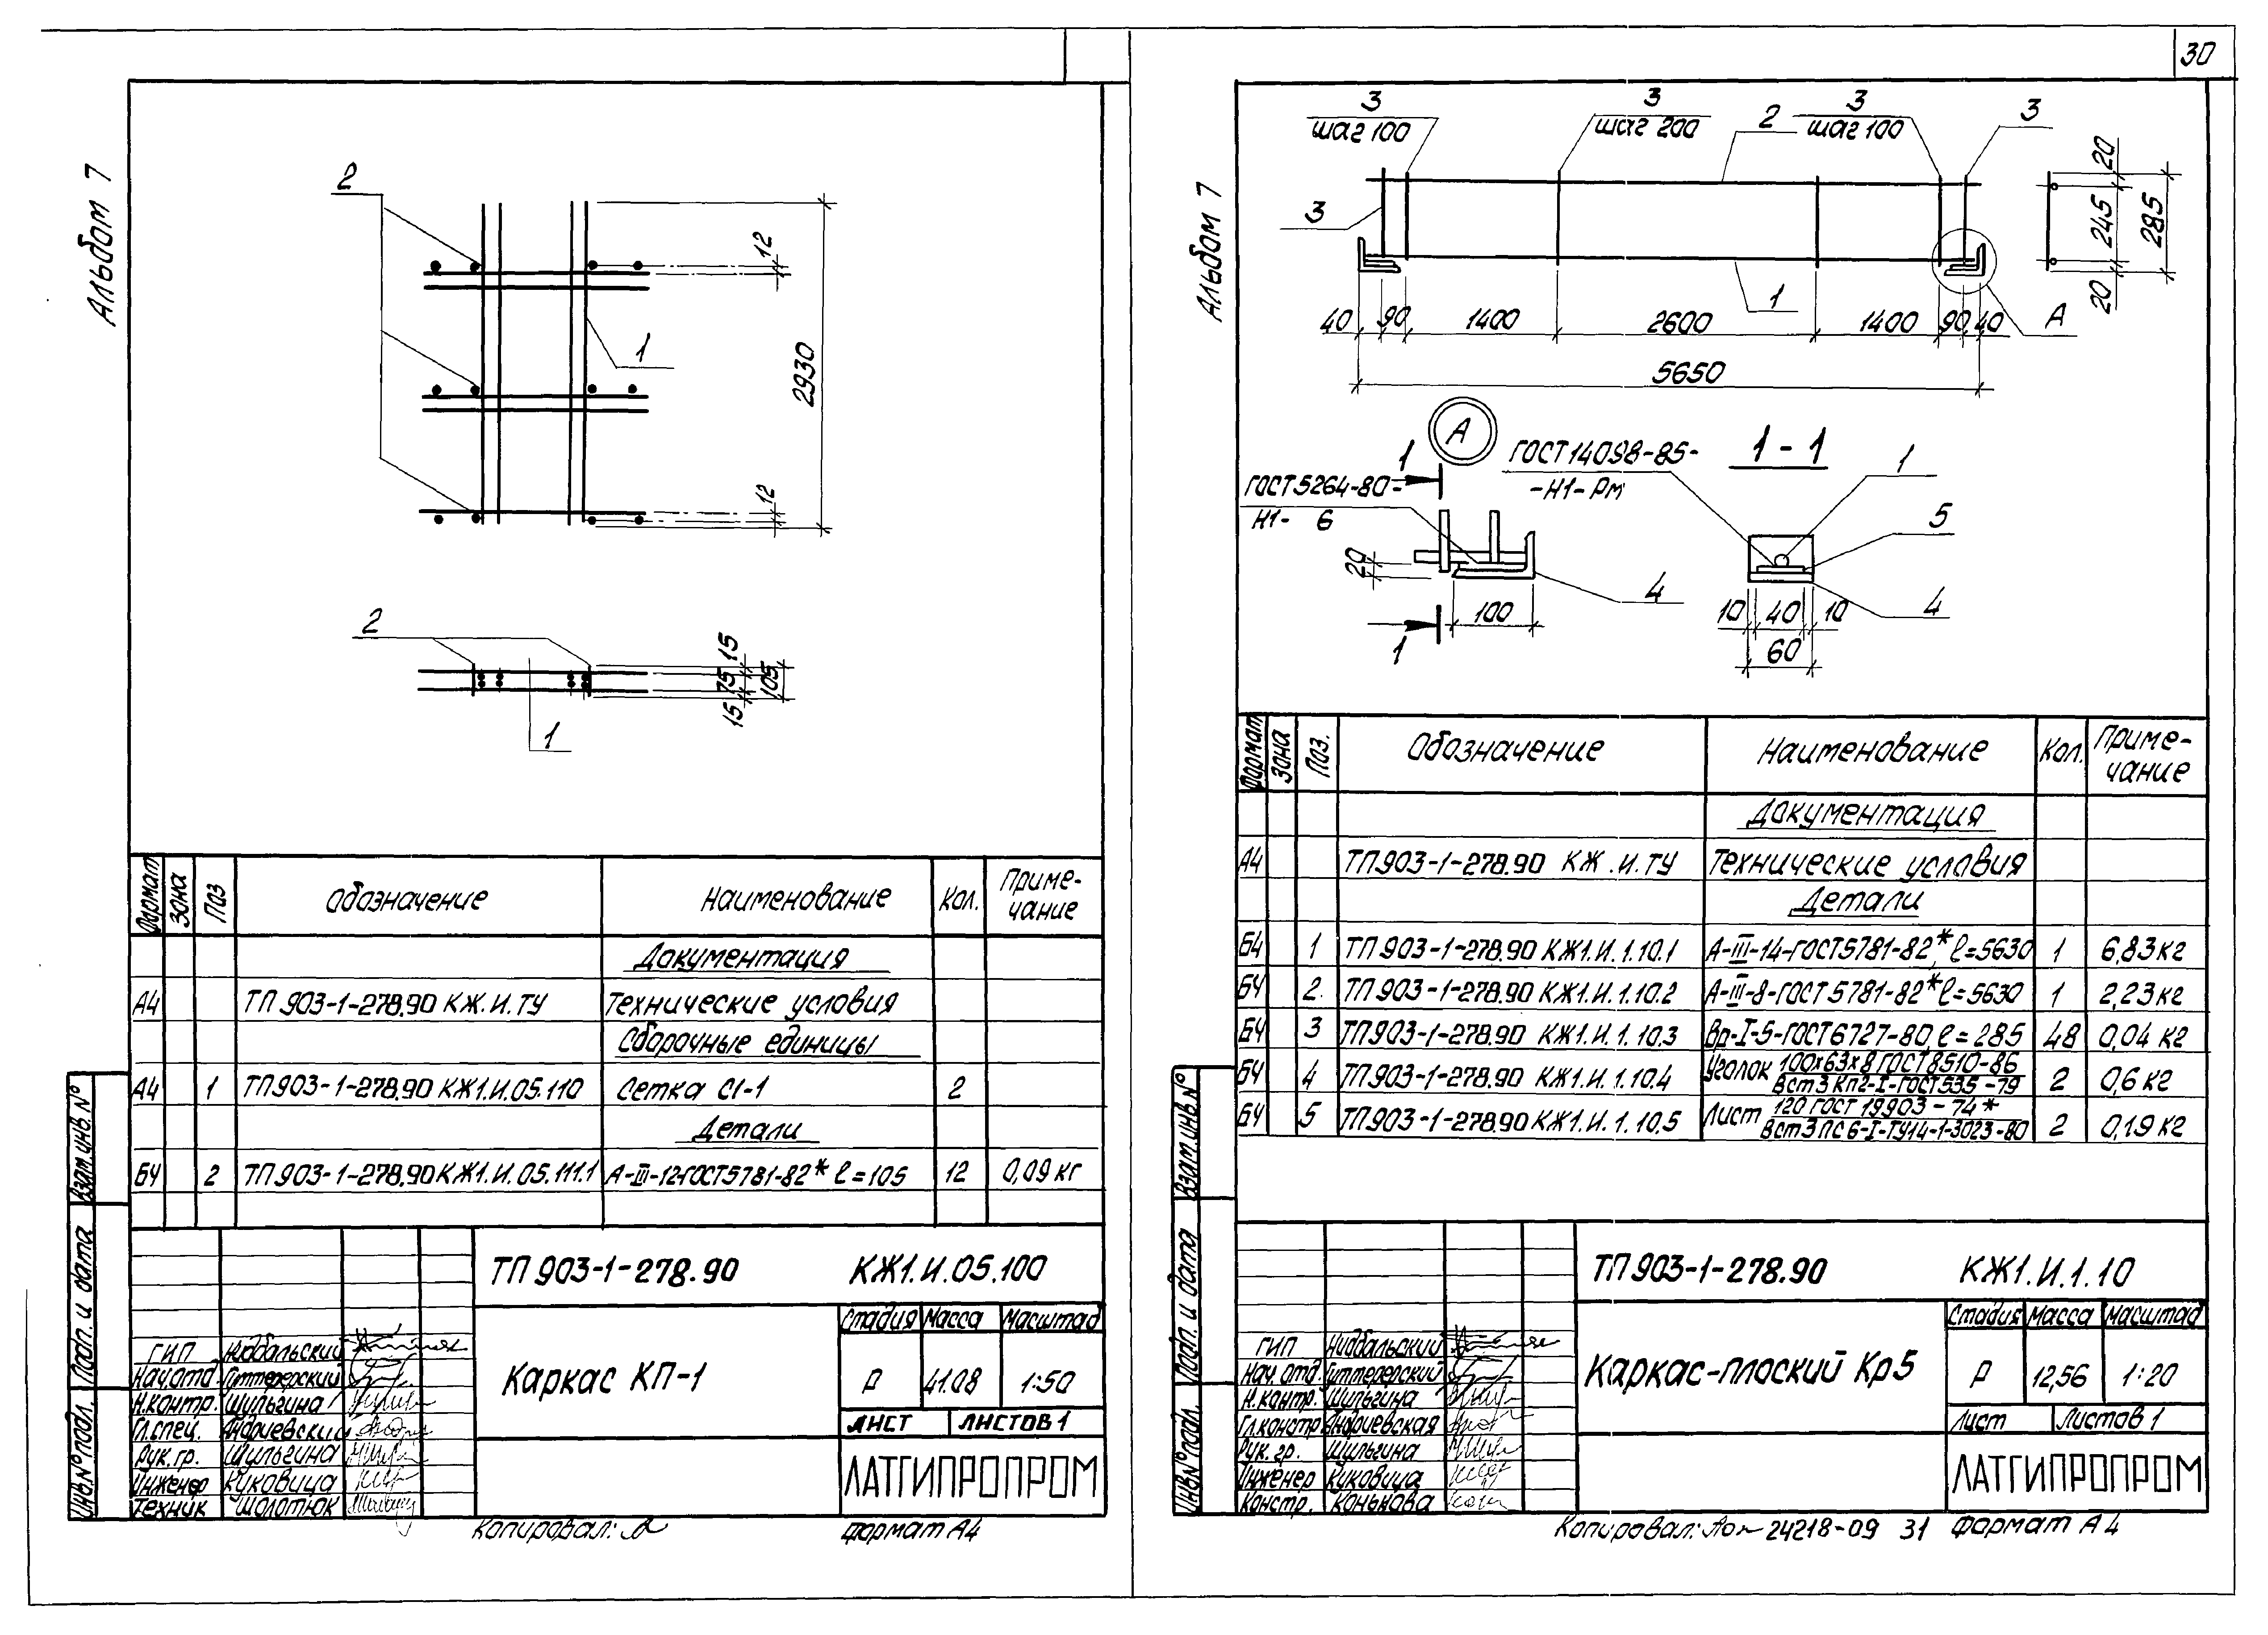 30
Альбом 7
2
12
1
2930
12
2
15
75
105
15
1
Формат Зона Поз Обозначение Наименование Кол. Приме-
чание
Документация
А4 ТП 903-1-278.90 КЖ.И.ТУ Технические условия
Сборочные единицы
А4 1 ТП 903-1-278.90 КЖ1.И.05.110 Сетка С1-1 2
Детали
БЧ 2 ТП 903-1-278.90 КЖ1.И.05.111.1 А-III-12-ГОСТ5781-82* ℓ=105 12 0,09 кг
ТП 903-1-278.90 КЖ1.И.05.100
Каркас КП-1
Стадия Масса Масштаб
Р 41.08 1:50
Лист Листов 1
ЛАТГИПРОПРОМ
ГИП Нидбальский
Нач.отд.
Н.контр. Шульгина
Гл.спец. Андриевский
Рук.гр. Шульгина
Инженер Куковица
Техник Шолотюк
Взам.инв.N°
Подп. и дата
Инв.N°подл.
Копировал:
Формат А4
Альбом 7
3
шаг 100
3
шаг 200
2
3
шаг 100
3
3
1
А
20
245
285
20
40 90 1400 2600 1400 90 40
5650
А
1
ГОСТ 14098-85-
-Н1-Рм
1-1
1
ГОСТ 5264-80-
Н1- 6
5
20
4
100
1
10 40 10
60
4
Формат Зона Поз. Обозначение Наименование Кол. Приме-
чание
Документация
А4 ТП903-1-278.90 КЖ.И.ТУ Технические условия
Детали
Б4 1 ТП 903-1-278.90 КЖ1.И.1.10.1 А-III-14-ГОСТ5781-82* ℓ=5630 1 6,83кг
БЧ 2. ТП 903-1-278.90 КЖ1.И.1.10.2 А-III-8-ГОСТ5781-82* ℓ=5630 1 2,23кг
БЧ 3 ТП903-1-278.90 КЖ1.И.1.10.3 Вр-I-5-ГОСТ6727-80, ℓ=285 48 0,04 кг
БЧ 4 ТП903-1-278.90 КЖ1.И.1.10.4 Уголок 100х63х8 ГОСТ 8510-86
Вст3Кп2-I-ГОСТ535-79 2 0,6 кг
БЧ 5 ТП903-1-278.90 КЖ1.И.1.10.5 Лист 120 ГОСТ 19903-74*
Вст3пс6-I-ТУ14-1-3023-80 2 0,19 кг
ТП 903-1-278.90 КЖ1.И.1.10
Каркас-плоский Кр5
Стадия Масса Масштаб
Р 12,56 1:20
Лист Листов 1
ЛАТГИПРОПРОМ
ГИП Нидбальский
Нач.отд.
Н.контр. Шульгина
Гл.констр. Андриевская
Рук.гр. Шульгина
Инженер Куковица
Констр. Конькова
Взам.инв.N°
Подп. и дата
Инв.N°подл.
Копировал: 24218-09 31 Формат А4